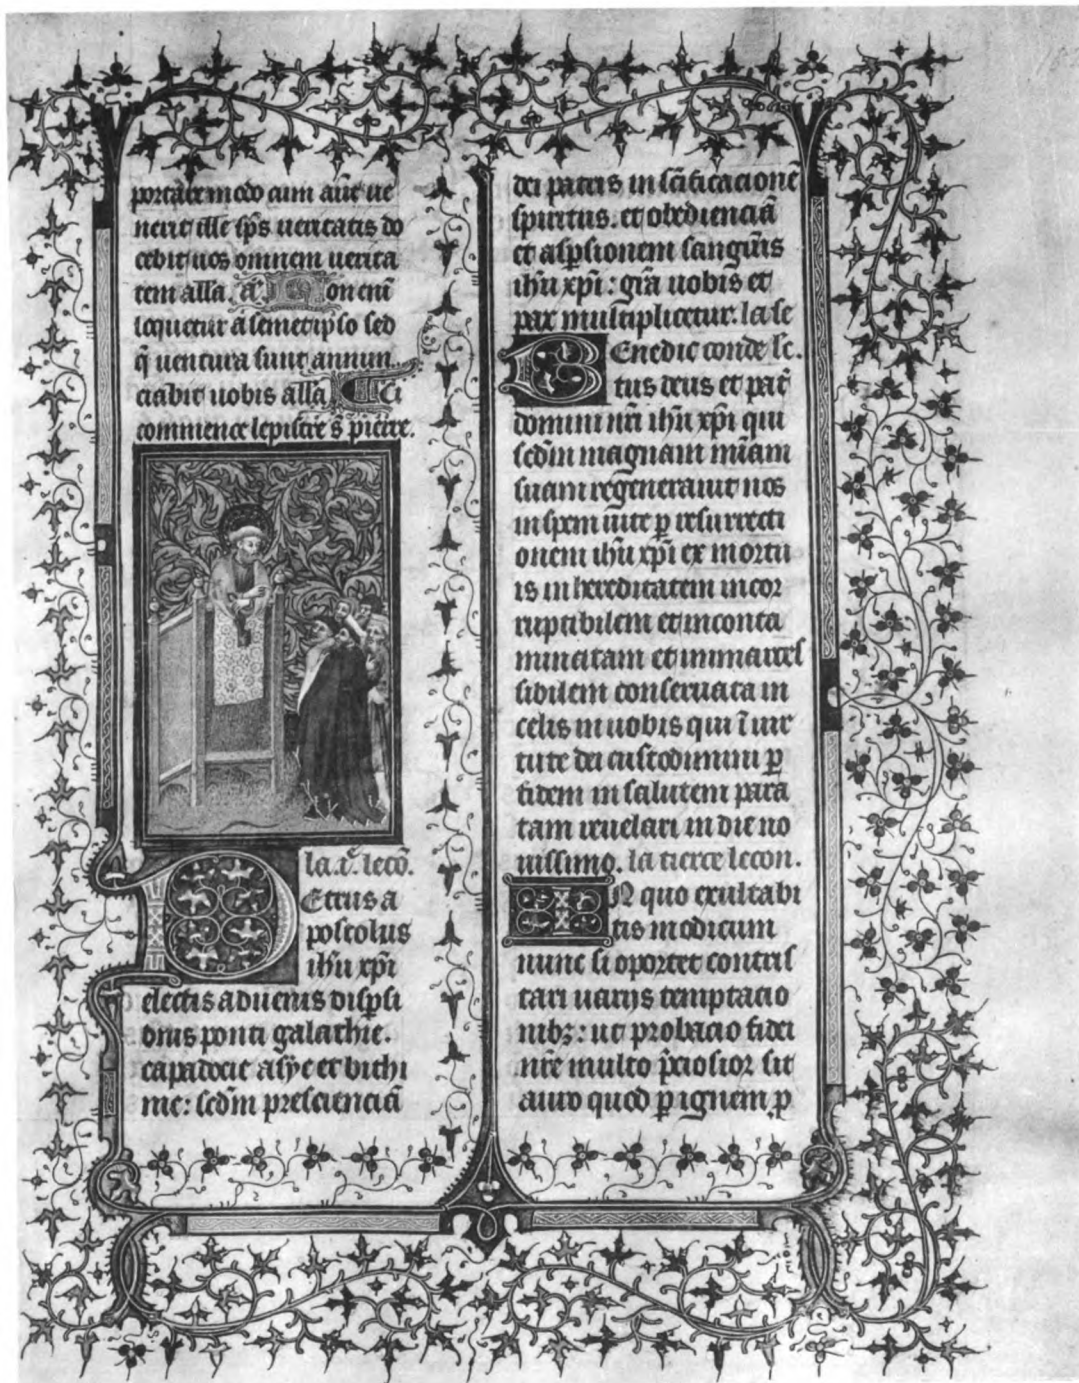 portare modo cum aut̄ ue
nerit ille sp̄s ueritatis do
cebit uos omnem uerita
tem alla. a̅ Non eni̅
loquetur a semetipso sed
q̄ uentura sunt annun
ciabit uobis alla Ci
commence lepistre s̄ pierre.
la .i. leco̅.
PEtrus a
postolus
ih̅u xp̅i
electis aduenis disp̱si
onis ponti galathie.
capadocie asye et bithi
nie: sed̅m prescienciā
dei patris in sc̅ificacionē
spiritus. et obedienciā
et asp̱sionem sangui̅s
ih̅u xp̅i: gr̅a uobis et
pax multiplicetur. la se
BEnedic conde lc̅.
tus deus et pat̅
domini nr̅i ih̅u xp̅i qui
sed̅m magnam mi̅am
suam regenerauit nos
in spem uite p̱ resurrecti
onem ih̅u xp̅i ex mortu
is in hereditatem incor
ruptibilem et inconta
minatam et inmarces
sibilem conseruata in
celis in uobis qui ī uir
tute dei custodimini p̱
fidem in salutem para
tam reuelari in die no
uissimo. la tierce lecon.
IN quo exultabi
tis modicum
nunc si oportet contris
tari uariis temptacio
nibꝫ: ut probacio fidei
nr̅e multo p̅ciosior sit
auro quod p̱ ignem p̱